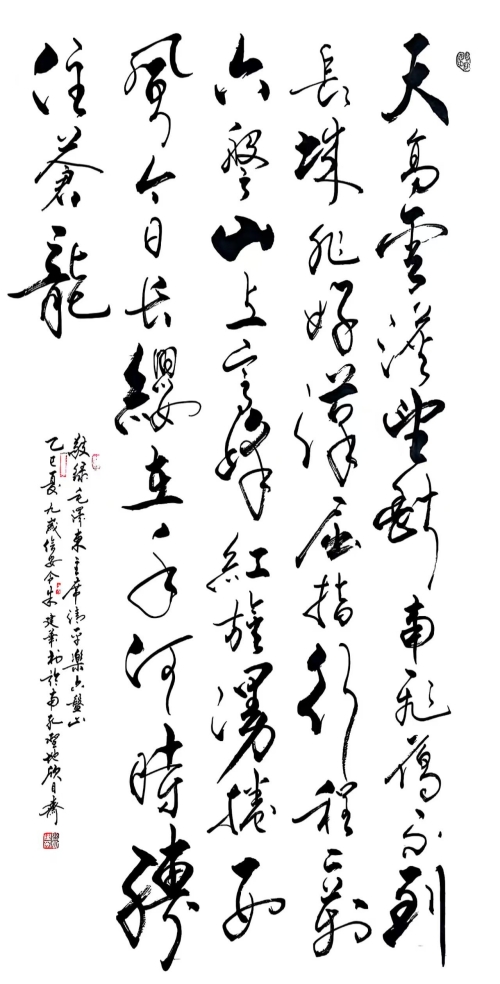 天高雲淡望斷南飛雁不到
長城非好漢屈指行程二萬
六盤山上高峰紅旗漫捲西
風今日長纓在手何時縛
住蒼龍
敬錄毛澤東主席清平樂六盤山
乙巳夏信安朱建華書於南孔聖地日齋